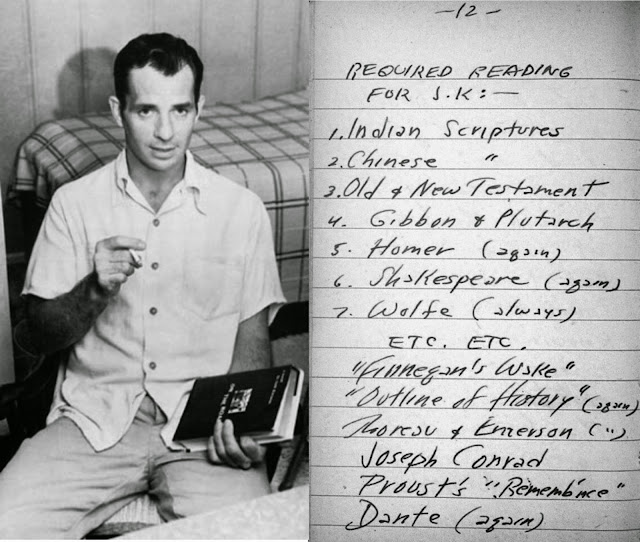 — 12 —
REQUIRED READING
FOR J.K:—
1. Indian Scriptures
2. Chinese "
3. Old & New Testament
4. Gibbon & Plutarch
5. Homer (again)
6. Shakespeare (again)
7. Wolfe (always)
ETC. ETC.
"Finnegan's Wake"
"Outline of History" (again)
Thoreau & Emerson (")
Joseph Conrad
Proust's "Rememb'nce"
Dante (again)